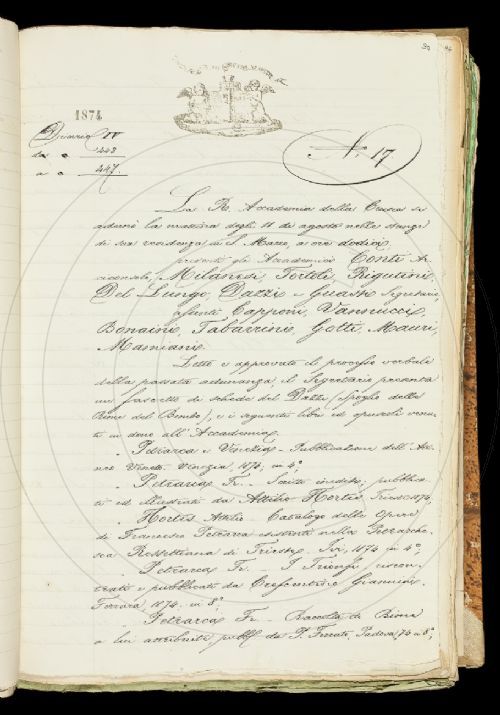 1874
Diario IV
da c. 443
a c. 447.
N. 17.
La R. Accademia della Crusca si
adunò la mattina degli 11 di agosto nelle stanze
di sua residenza in S. Marco, a ore dodici,
presenti gli Accademici Conti Ar-
ciconsolo, Milanesi, Tortoli, Rigutini,
Del Lungo, Dazzi e Guasti Segretario,
assenti Capponi, Vannucci,
Bonaini, Tabarrini, Gotti, Mauri,
Mamiani.
Letto e approvato il processo verbale
della passata adunanza, il Segretario presenta
un fascetto di schede del Dazzi (spoglio delle
Rime del Bembo), e i seguenti libri ed opuscoli venu-
ti in dono all'Accademia.
Petrarca e Venezia - Pubblicazione dell'Ate-
neo Veneto. Venezia, 1874, in 4.°
Petrarca Fr. - Scritti inediti, pubblica-
ti ed illustrati da Attilio Hortis, Trieste 1874,
Hortis Attilio - Catalogo delle Opere
di Francesco Petrarca esistenti nella Petrarche-
sca Rossettiana di Trieste. Ivi, 1874 in 4.°,
Petrarca Fr. - I Trionfi, riscon-
trati e pubblicati da Crescentino Giannini.
Ferrara, 1874, in 8.°,
Petrarca Fr. - Raccolta di Rime
a lui attribuite pubbl. da P. Ferrato, Padova, 74 in 8.°,